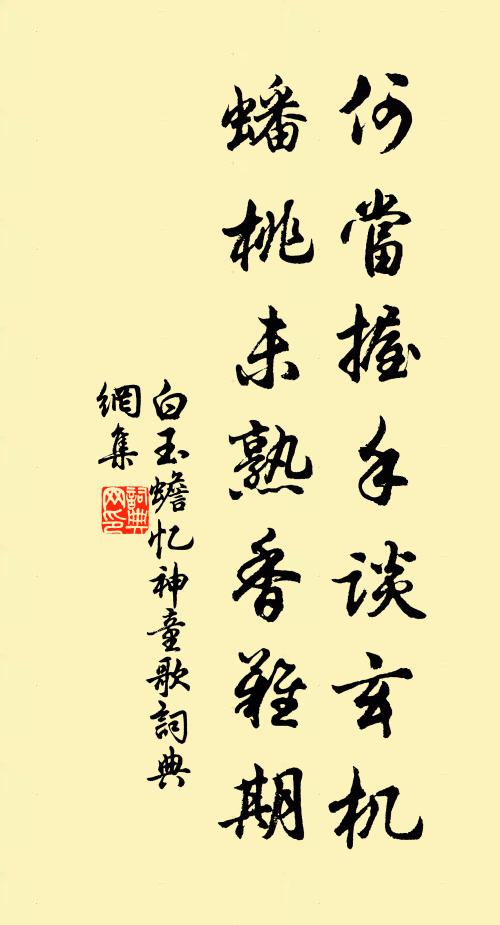 何當握手談玄机
蟠桃未熟香難期
白玉蟾忆神童歌詞典
網集
詞典
网印